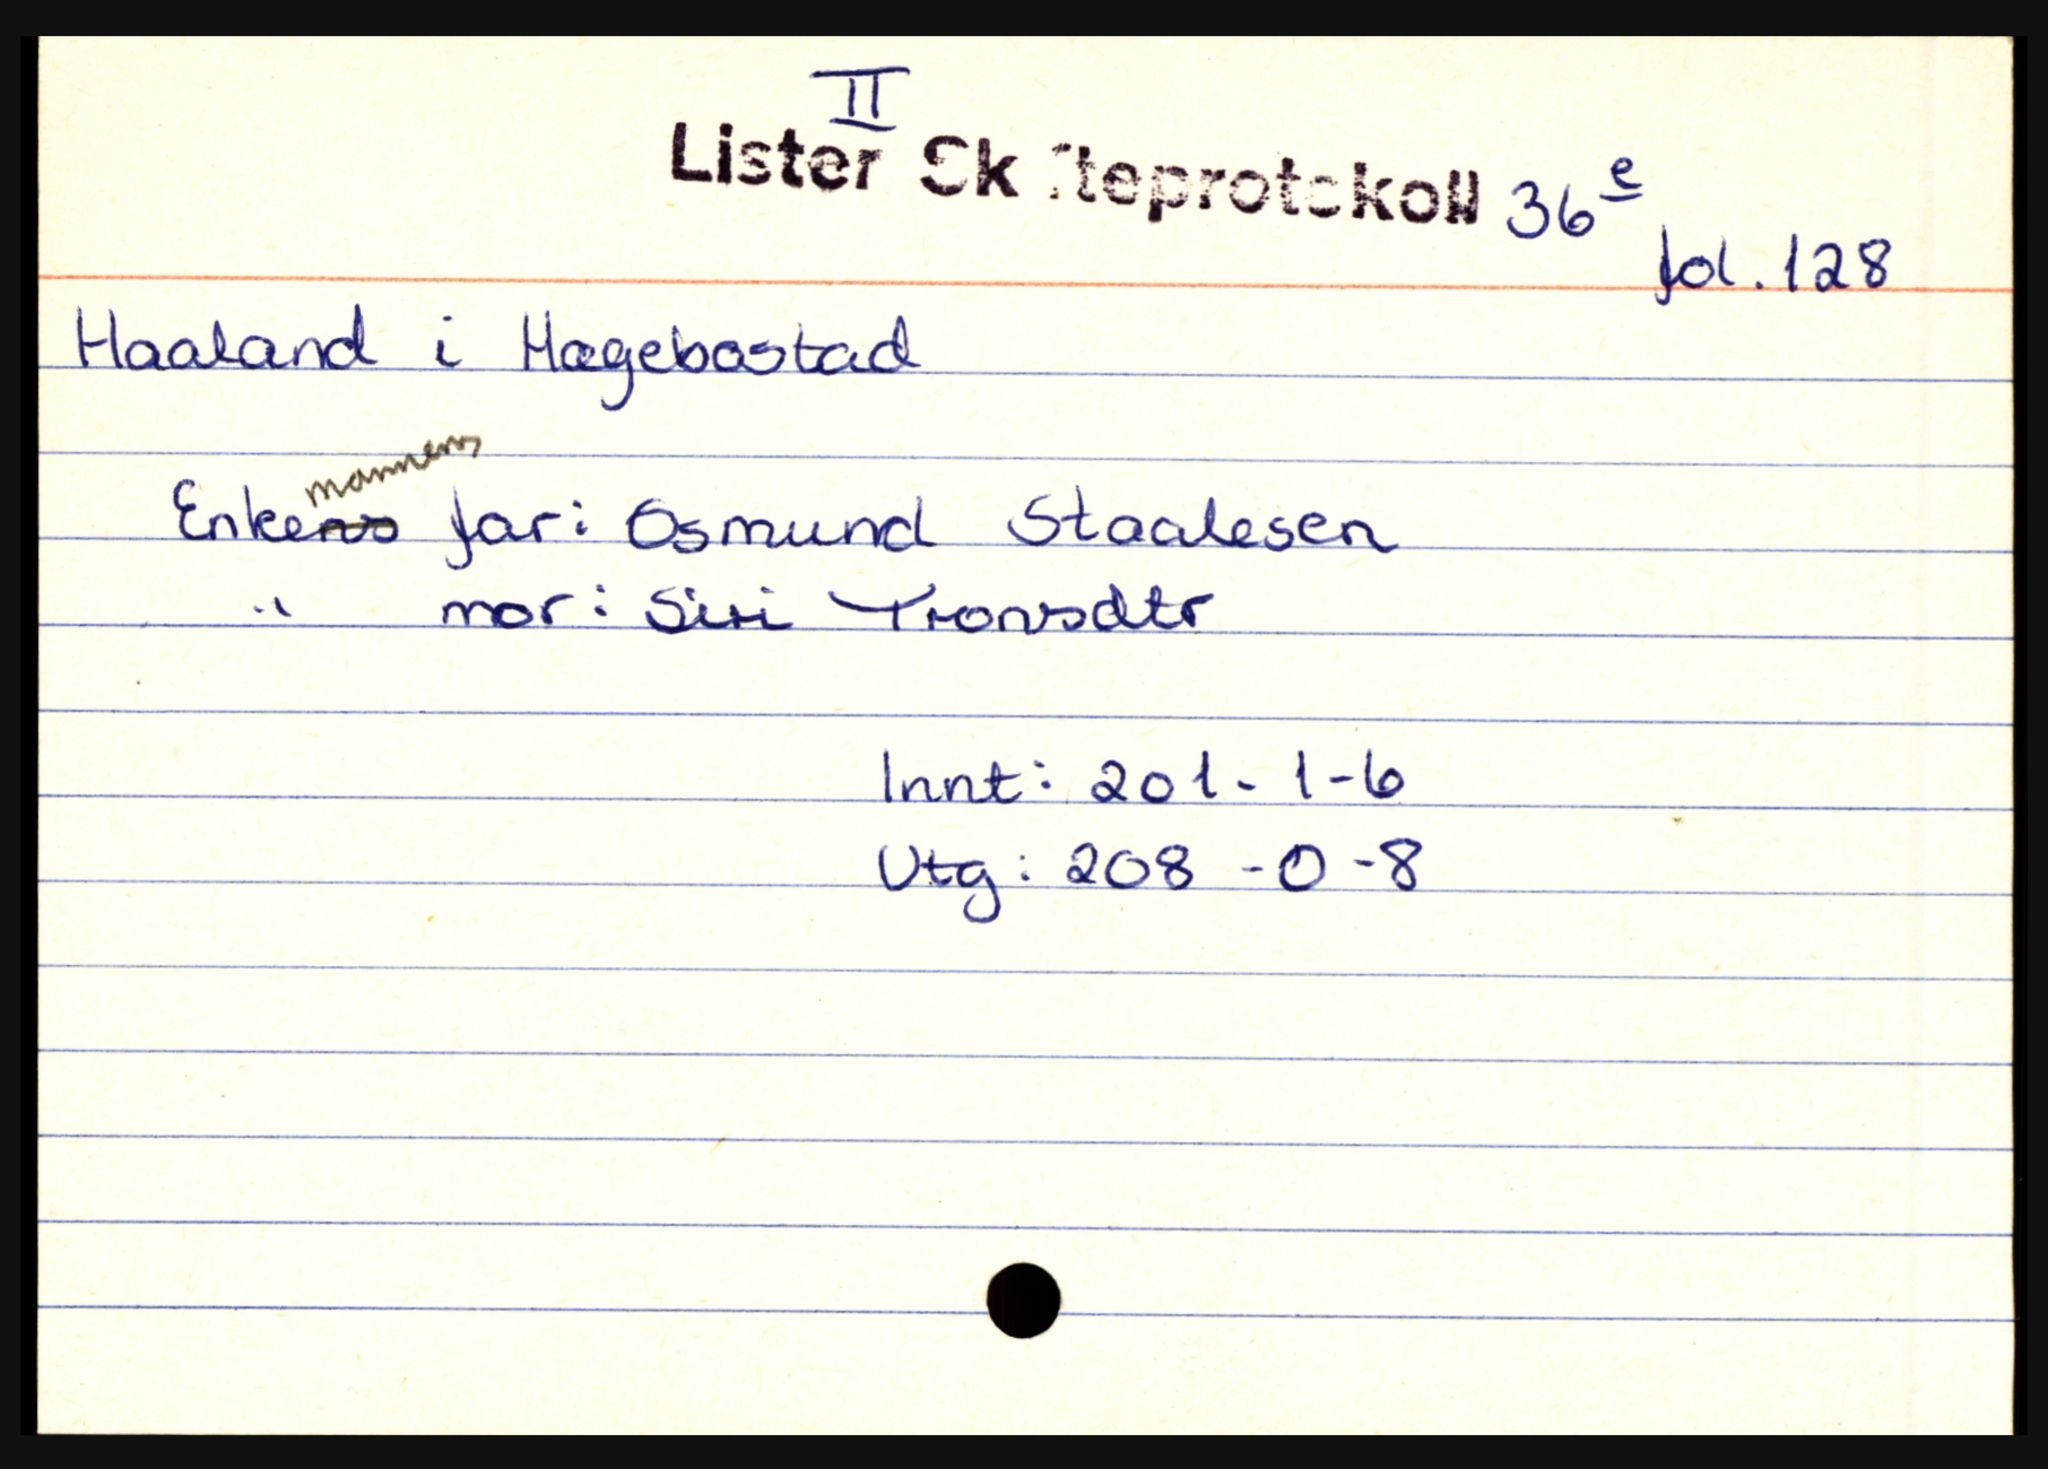 II
Lister Skifteprotokoll 36e
fol. 128
Haaland i Hægebostad
mannens
Enkens far: Osmund Staalesen
" mor: Siri Tronsdtr
Innt: 201-1-6
Utg: 208-0-8